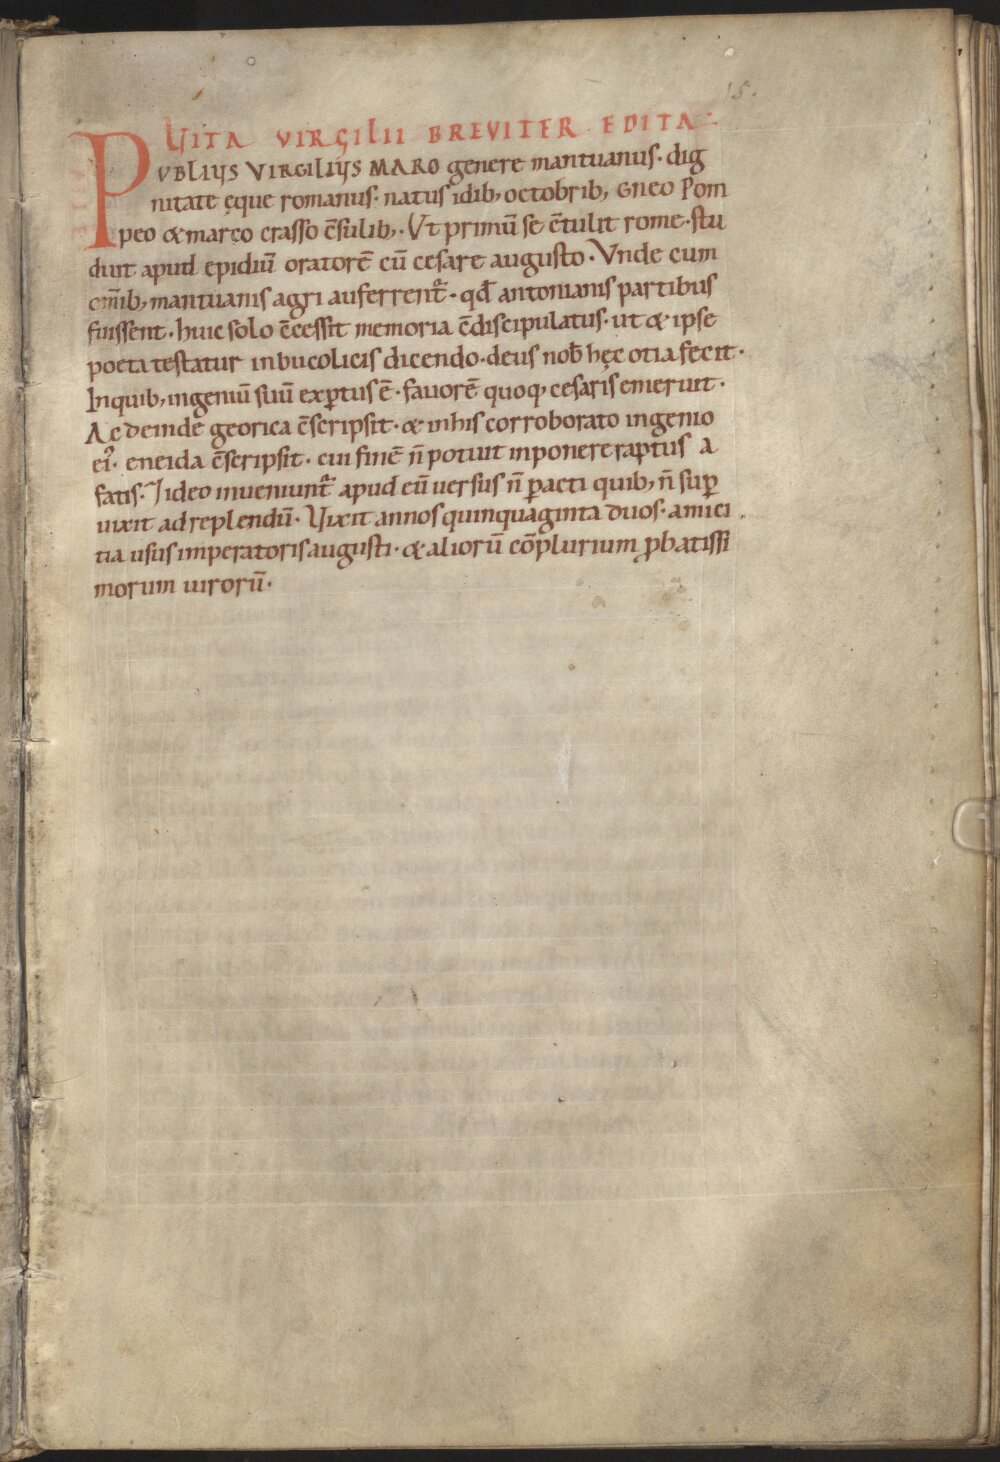 15.
UITA VIRGILII BREVITER EDITA
PVBLIUS VIRGILIUS MARO genere mantuanus· dig
nitate ęque romanus· natus idib; octobrib; GNEO Pom
peo & marco crasso c̄sulib;· Vt primū se c̄tulit rome· stu
duit apud epidiū oratorē cū cesare augusto· Vnde cum
om̄ib; mantuanis agri auferrent᷑· qđ antonianis partibus
fuissent· huic solo c̄cessit memoria c̄discipulatus· ut & ipse
poeta testatur in bucolicis dicendo· deus nob̄ hęc otia fecit·
Inquib; ingeniū suū exꝑtus ē· fauorē quoq; cesaris emeruit·
Ac deinde georica c̄scripsit· & in his corroborato ingenio
ei᷒· eneida c̄scripsit· cui finē n̄ potuit inponere raptus a
fatis· Ideo inueniunt᷑ apud eū uersus n̄ ꝑacti quib; n̄ suꝑ
uixit ad replendū· Uixit annos quinquaginta duos· amici
tia usus imperatoris augusti· & aliorū cōplurium ꝓbatissi
morum uirorū·